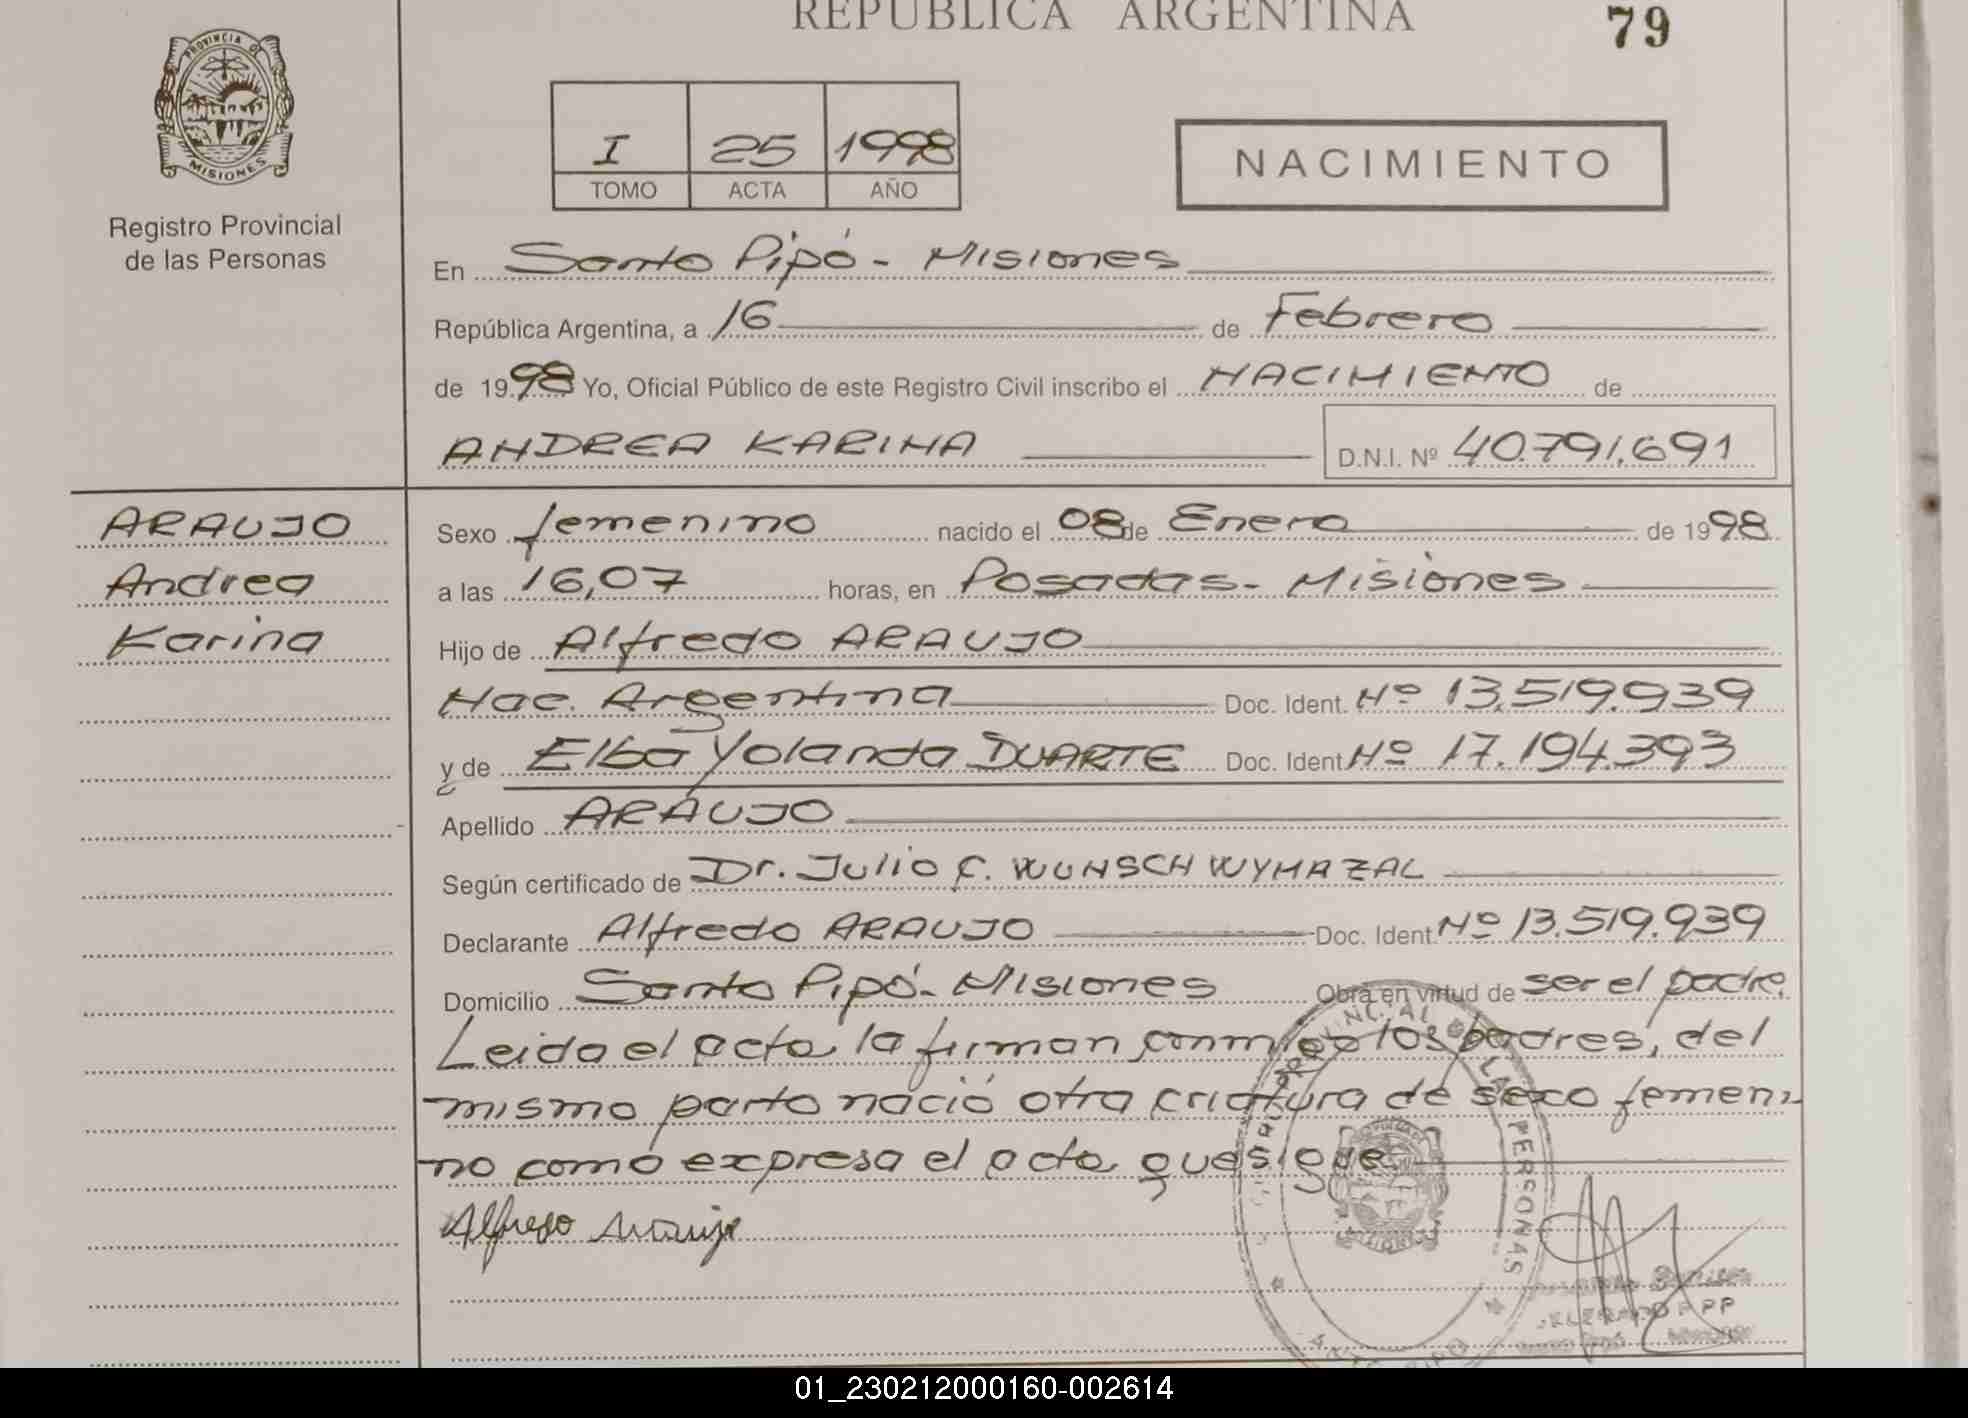 REPUBLICA ARGENTINA
79
PROVINCIA DE
MISIONES
Registro Provincial
de las Personas
I 25 1998
TOMO ACTA AÑO
NACIMIENTO
En Santo Pipó - Misiones
República Argentina, a 16 de Febrero
de 1998 Yo, Oficial Público de este Registro Civil inscribo el NACIMIENTO de
ANDREA KARINA D.N.I. Nº 40.791.691
ARAUJO
Andrea
Karina
Sexo femenino nacido el 08 de Enero de 1998
a las 16,07 horas, en Posadas - Misiones
Hijo de Alfredo ARAUJO
Nac. Argentina Doc. Ident. Nº 13.519.939
y de Elba Yolanda DUARTE Doc. Ident Nº 17.194.393
Apellido ARAUJO
Según certificado de Dr. Julio C. WUNSCH WYMAZAL
Declarante Alfredo ARAUJO Doc. Ident. Nº 13.519.939
Domicilio Santo Pipó - Misiones Obra en virtud de ser el padre,
Leida el acta la firman conmigo los padres, del
mismo parto nació otra criatura de sexo femeni-
no como expresa el acta que sigue
Alfredo Araujo
PROVINCIAL DE LAS PERSONAS
MISIONES
01_230212000160-002614